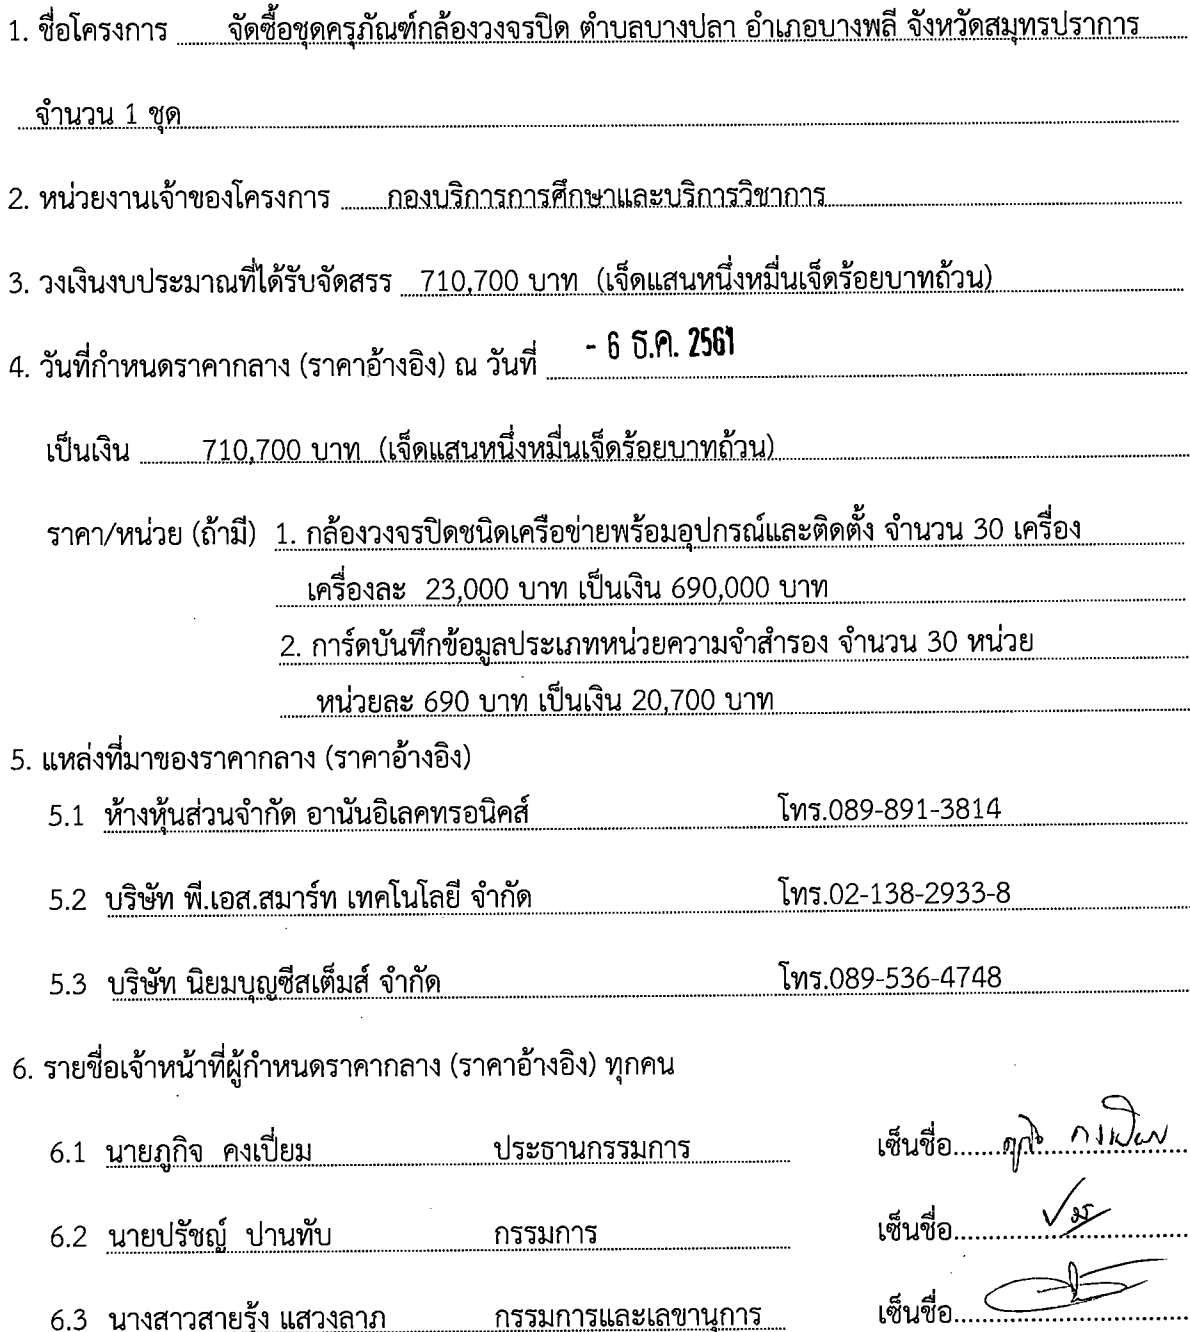 1. ชื่อโครงการ จัดซื้อชุดครุภัณฑ์กล้องวงจรปิด ตำบลบางปลา อำเภอบางพลี จังหวัดสมุทรปราการ
จำนวน 1 ชุด
2. หน่วยงานเจ้าของโครงการ กองบริการการศึกษาและบริการวิชาการ
3. วงเงินงบประมาณที่ได้รับจัดสรร 710,700 บาท (เจ็ดแสนหนึ่งหมื่นเจ็ดร้อยบาทถ้วน)
4. วันที่กำหนดราคากลาง (ราคาอ้างอิง) ณ วันที่ - 6 ธ.ค. 2561
เป็นเงิน 710,700 บาท (เจ็ดแสนหนึ่งหมื่นเจ็ดร้อยบาทถ้วน)
ราคา/หน่วย (ถ้ามี) 1. กล้องวงจรปิดชนิดเครือข่ายพร้อมอุปกรณ์และติดตั้ง จำนวน 30 เครื่อง
เครื่องละ 23,000 บาท เป็นเงิน 690,000 บาท
2. การ์ดบันทึกข้อมูลประเภทหน่วยความจำสำรอง จำนวน 30 หน่วย
หน่วยละ 690 บาท เป็นเงิน 20,700 บาท
5. แหล่งที่มาของราคากลาง (ราคาอ้างอิง)
5.1 ห้างหุ้นส่วนจำกัด อานันอิเลคทรอนิคส์ โทร.089-891-3814
5.2 บริษัท พี.เอส.สมาร์ท เทคโนโลยี จำกัด โทร.02-138-2933-8
5.3 บริษัท นิยมบุญซีสเต็มส์ จำกัด โทร.089-536-4748
6. รายชื่อเจ้าหน้าที่ผู้กำหนดราคากลาง (ราคาอ้างอิง) ทุกคน
6.1 นายภูกิจ คงเปี่ยม ประธานกรรมการ เซ็นชื่อ
6.2 นายปรัชญ์ ปานทับ กรรมการ เซ็นชื่อ
6.3 นางสาวสายรุ้ง แสวงลาภ กรรมการและเลขานุการ เซ็นชื่อ